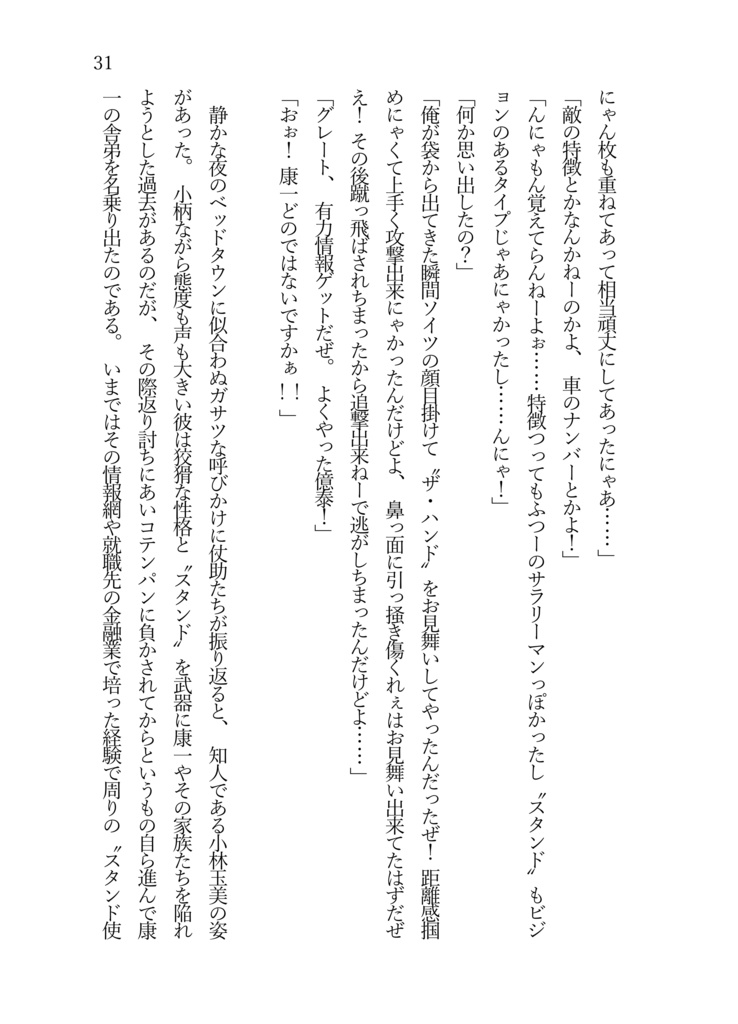 31
にゃん枚も重ねてあって相当頑丈にしてあったにゃあ……」
「敵の特徴とかなんかねーのかよ、車のナンバーとかよ！」
「んにゃもん覚えてらんねーよぉ……特徴つってもふつーのサラリーマンっぽかったし〝スタンド〟もビジ
ョンのあるタイプじゃあにゃかったし……んにゃ！」
「何か思い出したの？」
「俺が袋から出てきた瞬間ソイツの顔目掛けて〝ザ・ハンド〟をお見舞いしてやったんだったぜ！　距離感掴
めにゃくて上手く攻撃出来にゃかったんだけどよ、鼻っ面に引っ掻き傷くれぇはお見舞い出来てたはずだぜ
え！その後蹴っ飛ばされちまったから追撃出来ねーで逃がしちまったんだけどよ……」
「グレート、有力情報ゲットだぜ。よくやった億泰！」
「おぉ！康一どのではないですかぁ！！」
静かな夜のベッドタウンに似合わぬガサツな呼びかけに仗助たちが振り返ると、知人である小林玉美の姿
があった。小柄ながら態度も声も大きい彼は狡猾な性格と〝スタンド〟を武器に康一やその家族たちを陥れ
ようとした過去があるのだが、その際返り討ちにあいコテンパンに負かされてからというもの自ら進んで康
一の舎弟を名乗り出たのである。いまではその情報網や就職先の金融業で培った経験で周りの〝スタンド使